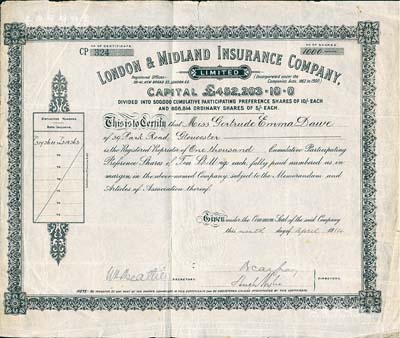 No OF CERTIFICATE.
CP 324
No OF SHARES
1000
LONDON & MIDLAND INSURANCE COMPANY,
LIMITED
Registered Offices:-
(Incorporated under the
Companies Acts, 1862 to 1900)
CAPITAL £452,203-10-0
DIVIDED INTO 500,000 CUMULATIVE PARTICIPATING PREFERENCE SHARES OF 10/- EACH
AND ORDINARY SHARES OF 5/- EACH.
This is to Certify that Miss Gertrude Emma Dawe
of 39 Park Road Gloucester
is the Registered Proprietor of One thousand Cumulative Participating
Preference Shares of Ten Shillings each, fully paid numbered as in
margin, in the above-named Company, subject to the Memorandum and
Articles of Association thereof.
Given under the Common Seal of the said Company
this ninth day of April
SECRETARY.
DIRECTORS.